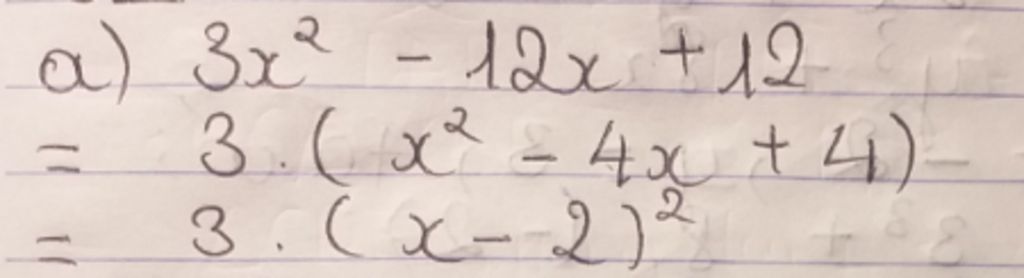 a) 3x² - 12x + 12
= 3 . ( x² - 4x + 4)
= 3 . ( x - 2 )²